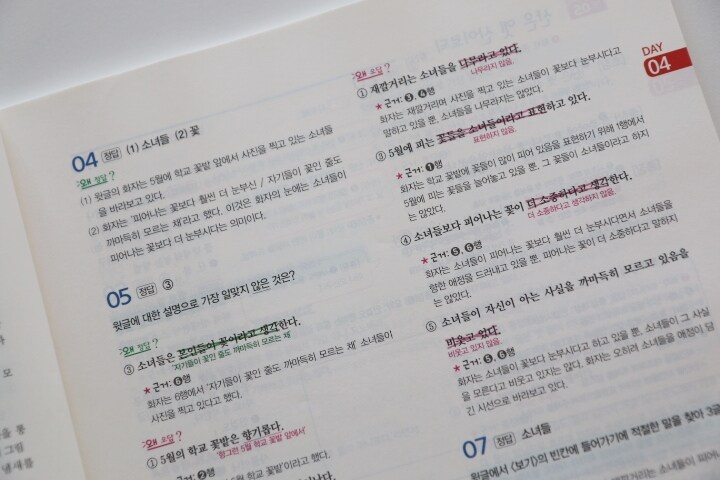 04 정답 (1) 소녀들 (2) 꽃
왜 정답?
(1) 윗글의 화자는 5월에 학교 꽃밭 앞에서 사진을 찍고 있는 소녀들
을 바라보고 있다.
(2) 화자는 '피어나는 꽃보다 훨씬 더 눈부신 / 자기들이 꽃인 줄도
까마득히 모르는 채'라고 했다. 이것은 화자의 눈에는 소녀들이
피어나는 꽃보다 더 눈부시다는 의미이다.
05 정답 ③
윗글에 대한 설명으로 가장 알맞지 않은 것은?
왜 정답?
③ 소녀들은 본인들이 꽃이라고 생각한다.
'자기들이 꽃인 줄도 까마득히 모르는 채'
★ 근거: ❻행
화자는 6행에서 '자기들이 꽃인 줄도 까마득히 모르는 채' 소녀들이
사진을 찍고 있다고 했다.
왜 오답?
① 5월의 학교 꽃밭은 향기롭다.
'향그런 5월 학교 꽃밭 앞에서'
★ 근거: ❷행
5월 학교 꽃밭'이라고 했다.
DAY
04
왜 오답?
① 재깔거리는 소녀들을 나무라고 있다.
나무라지 않음.
★ 근거: ❸, ❹행
화자는 재깔거리며 사진을 찍고 있는 소녀들이 꽃보다 눈부시다고
말하고 있을 뿐, 소녀들을 나무라지는 않았다.
③ 5월에 피는 꽃들을 소녀들이라고 표현하고 있다.
표현하지 않음.
★ 근거: ❶행
화자는 학교 꽃밭에 꽃들이 많이 피어 있음을 표현하기 위해 1행에서
5월에 피는 꽃들을 늘어놓고 있을 뿐, 그 꽃들이 소녀들이라고 하지
는 않았다.
④ 소녀들보다 피어나는 꽃이 더 소중하다고 생각한다.
더 소중하다고 생각하지 않음.
★ 근거: ❺, ❻행
화자는 소녀들이 피어나는 꽃보다 훨씬 더 눈부시다면서 소녀들을
향한 애정을 드러내고 있을 뿐, 피어나는 꽃이 더 소중하다고 말하지
는 않았다.
⑤ 소녀들이 자신이 아는 사실을 까마득히 모르고 있음을
비웃고 있다.
비웃고 있지 않음.
★ 근거: ❺, ❻행
화자는 소녀들이 꽃보다 눈부시다고 하고 있을 뿐, 소녀들이 그 사실
을 모른다고 비웃고 있지는 않다. 화자는 오히려 소녀들을 애정이 담
긴 시선으로 바라보고 있다.
07 정답 소녀들
윗글에서 〈보기〉의 빈칸에 들어가기에 적절한 말을 찾아 3글